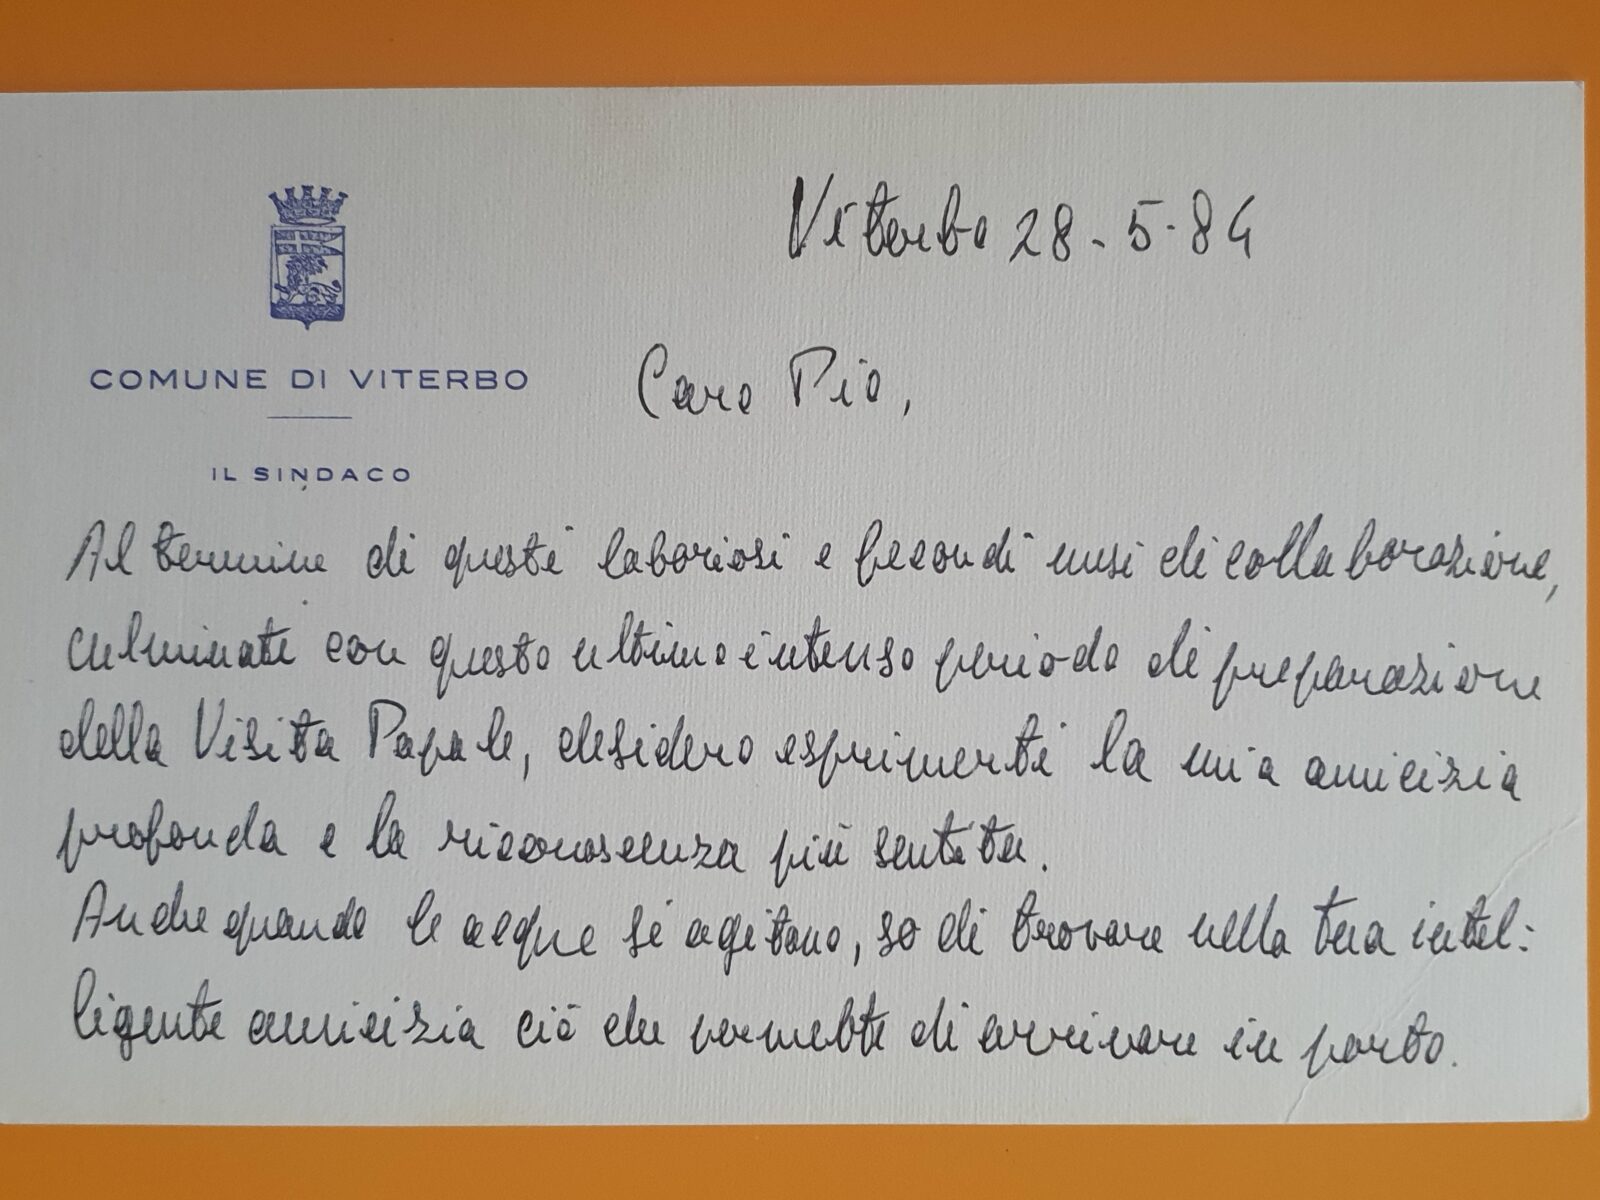 Viterbo 28-5-84
COMUNE DI VITERBO
IL SINDACO
Caro Pio,
Al termine di questi laboriosi e fecondi mesi di collaborazione,
culminati con questo ultimo intenso periodo di preparazione
della Visita Papale, desidero esprimerti la mia amicizia
profonda e la riconoscenza più sentita.
Anche quando le acque si agitano, so di trovare nella tua intel:
ligente amicizia ciò che permette di arrivare in porto.